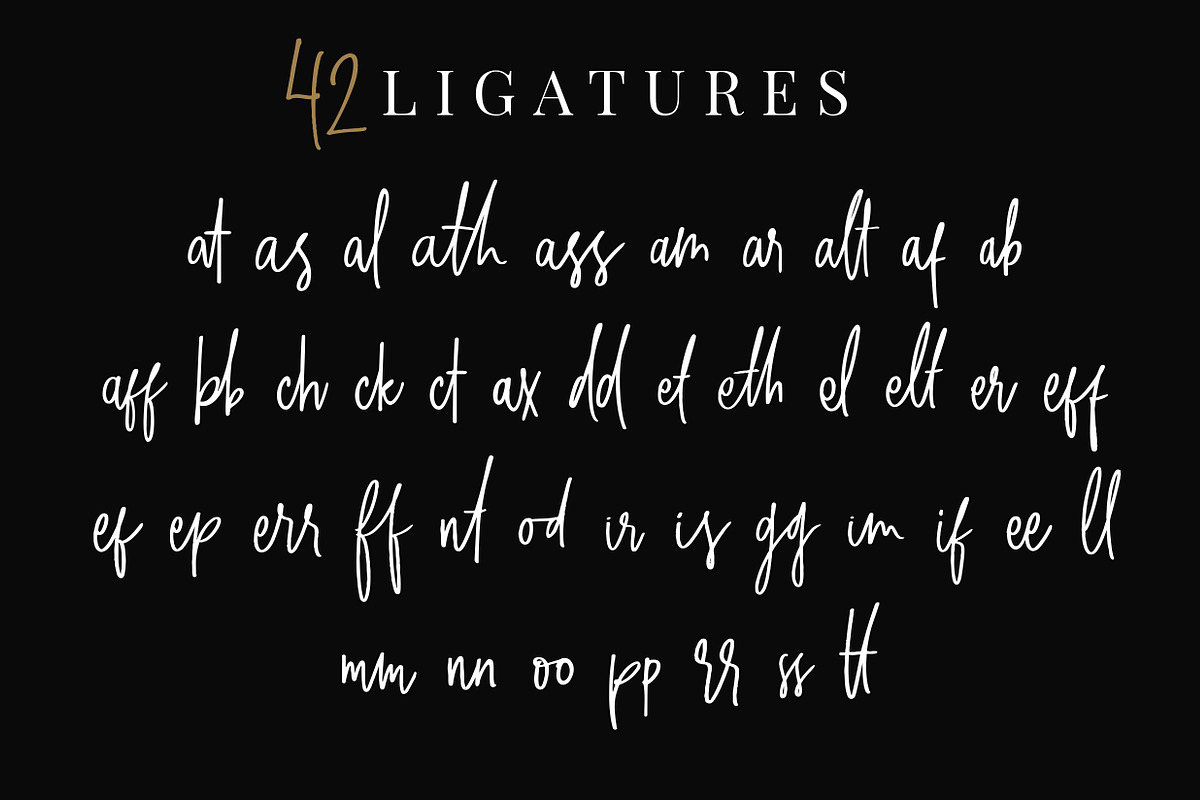 42 LIGATURES
at as al ath ass am ar alt af ab
aff bb ch ck ct ax dd et eth el elt er eff
ef ep err ff nt od ir is gg im if ee ll
mm nn oo pp rr ss tt